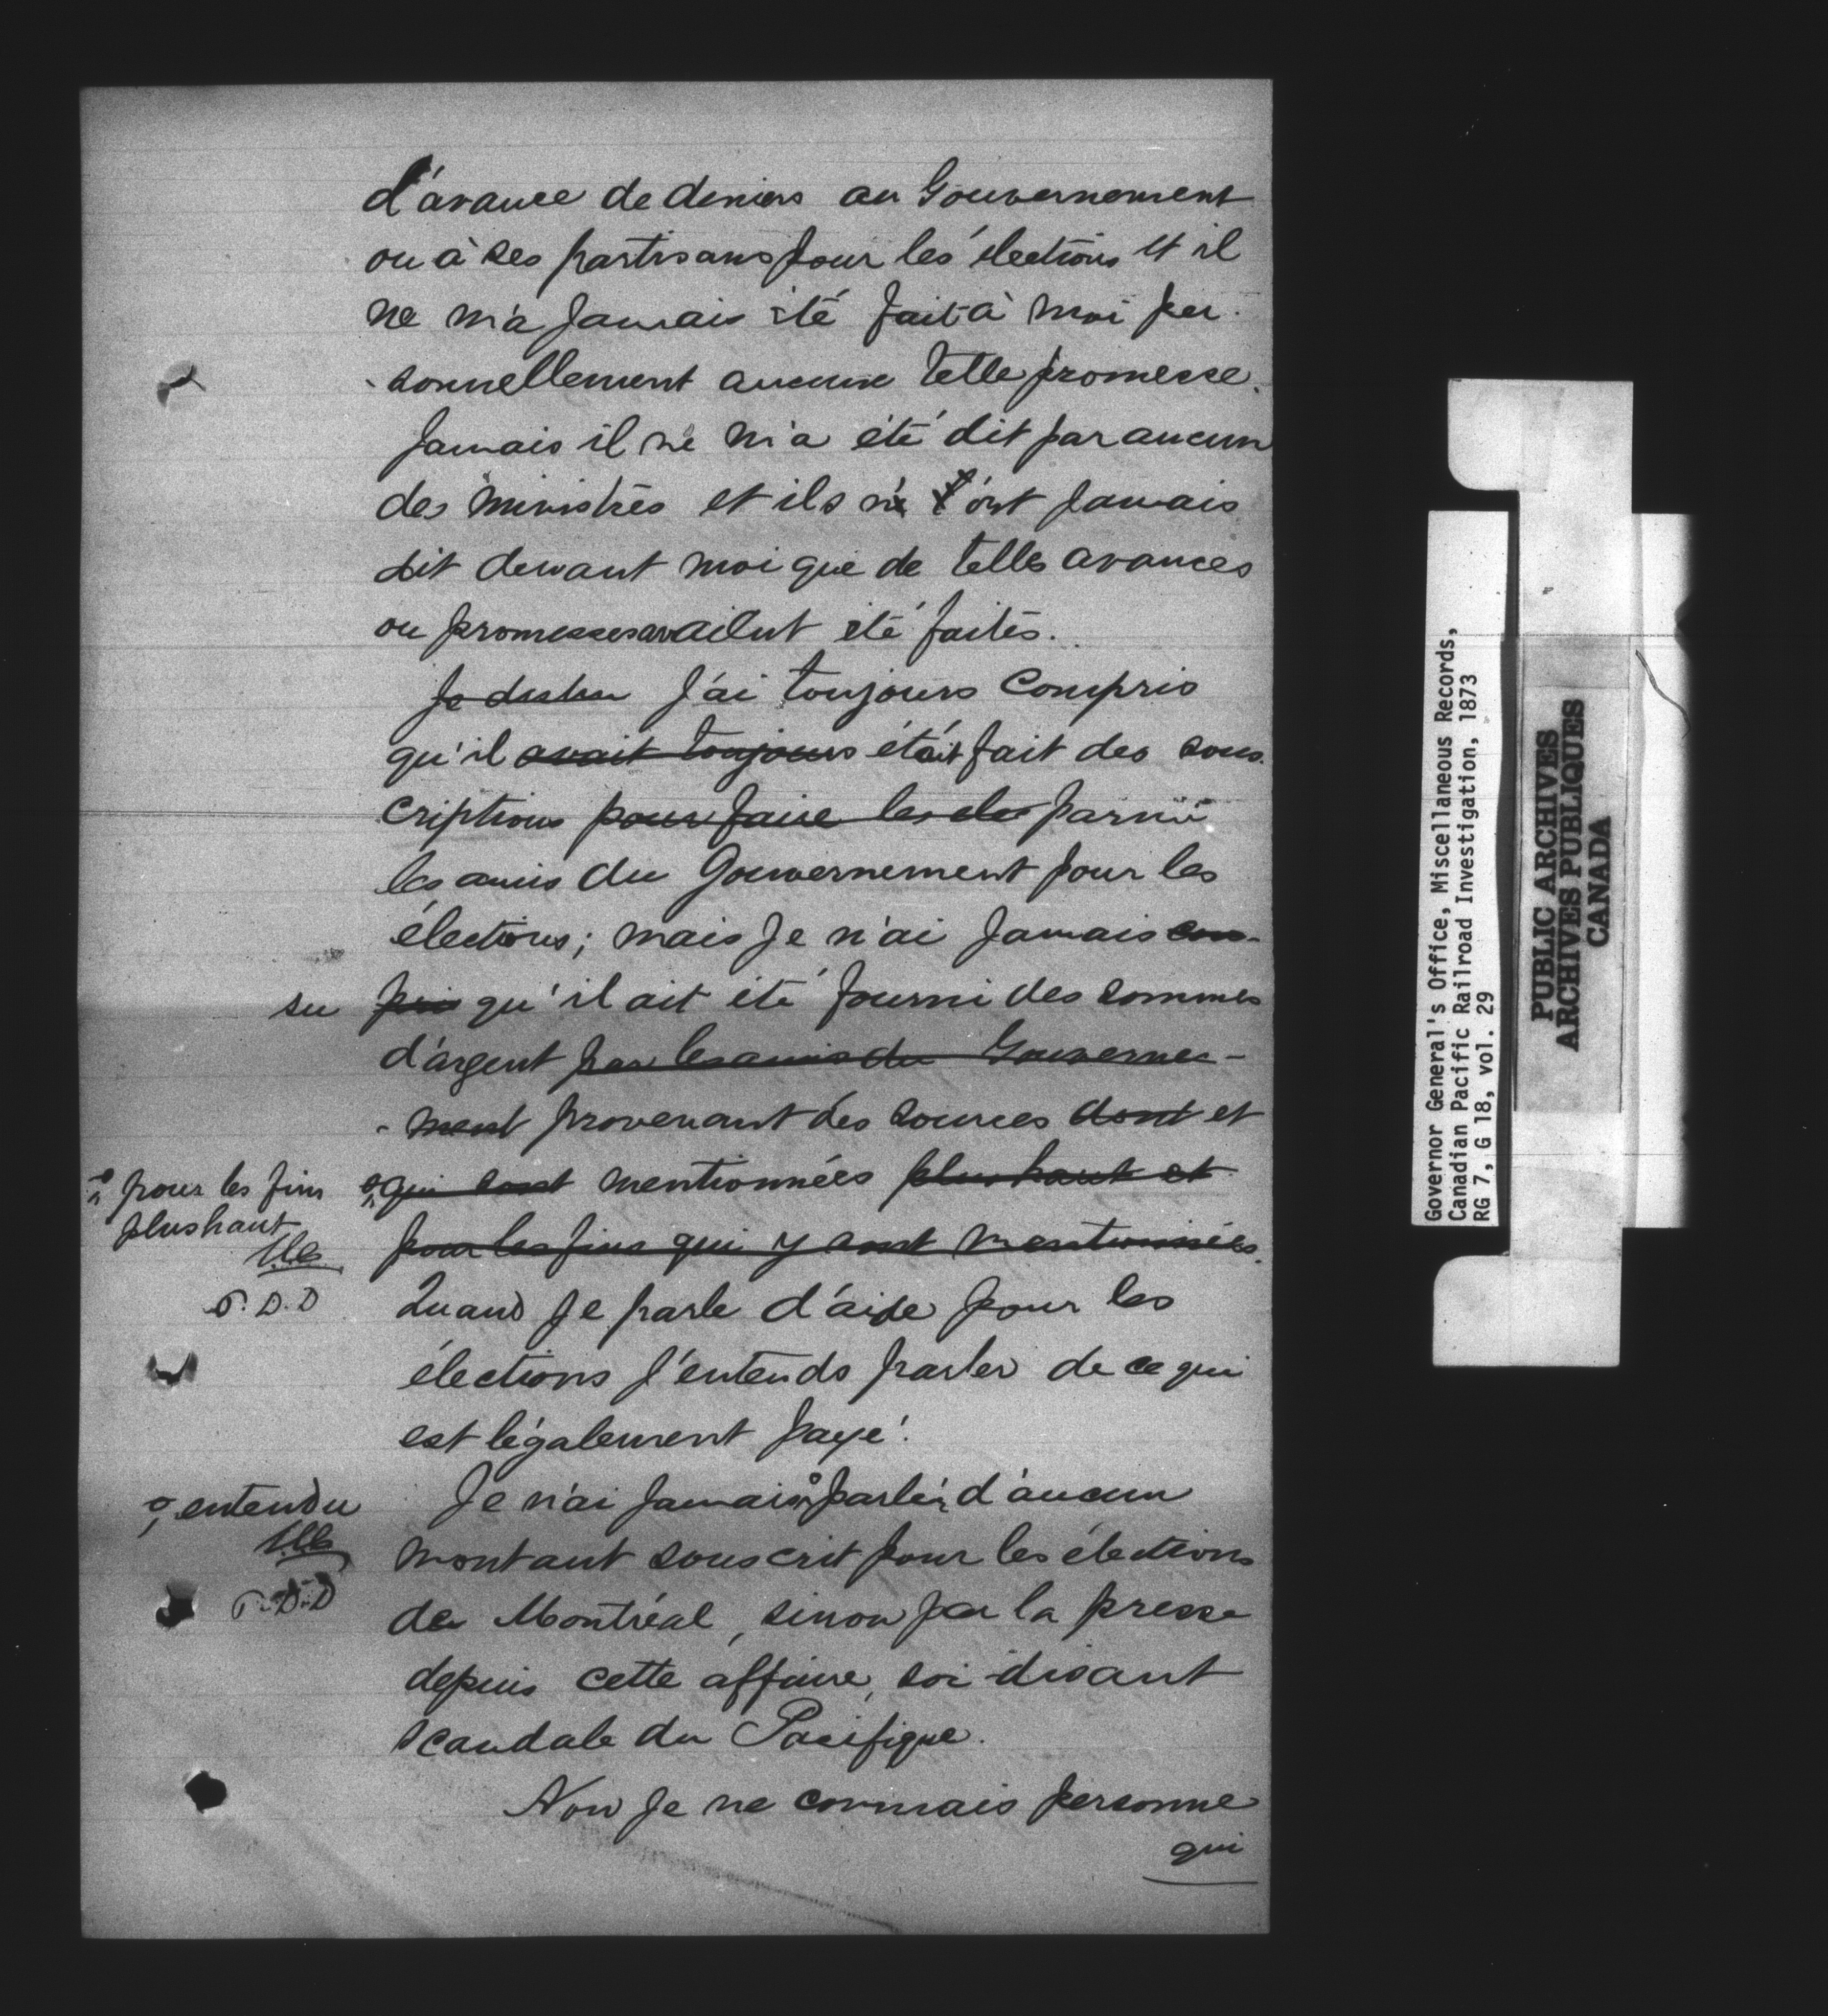 d'avance de deniers au Gouvernement
ou à ses partisans pour les élections et il
ne m'a jamais été fait à moi per-
-sonnellement aucune telle promesse.
Jamais il ne m'a été dit par aucun
des ministres et ils n'ont jamais
dit devant moi que de telles avances
ou promesses avaient été faites.
J'ai toujours compris
qu'il avait toujours était fait des sous-
criptions pour faire les ele parmi
les amis du Gouvernement pour les
élections; mais je n'ai jamais com-
su pris qu'il ait été fourni des sommes
d'argent par les amis du Gouverne-
-ment provenant des sources dont et
pour les fins
plus haut
qui sont mentionnées plus haut et
pour les fins qui y sont mentionnées.
P.D.D
Quand je parle d'aide pour les
élections j'entends parler de ce qui
est légalement payé.
entendu
Je n'ai jamais parlé d'aucun
montant souscrit pour les élections
P.D.D
de Montréal, sinon par la presse
depuis cette affaire, soi-disant
scandale du Pacifique.
Non je ne connais personne
qui
Governor General's Office, Miscellaneous Records,
Canadian Pacific Railroad Investigation, 1873
RG 7, G 18, vol. 29
PUBLIC ARCHIVES
ARCHIVES PUBLIQUES
CANADA